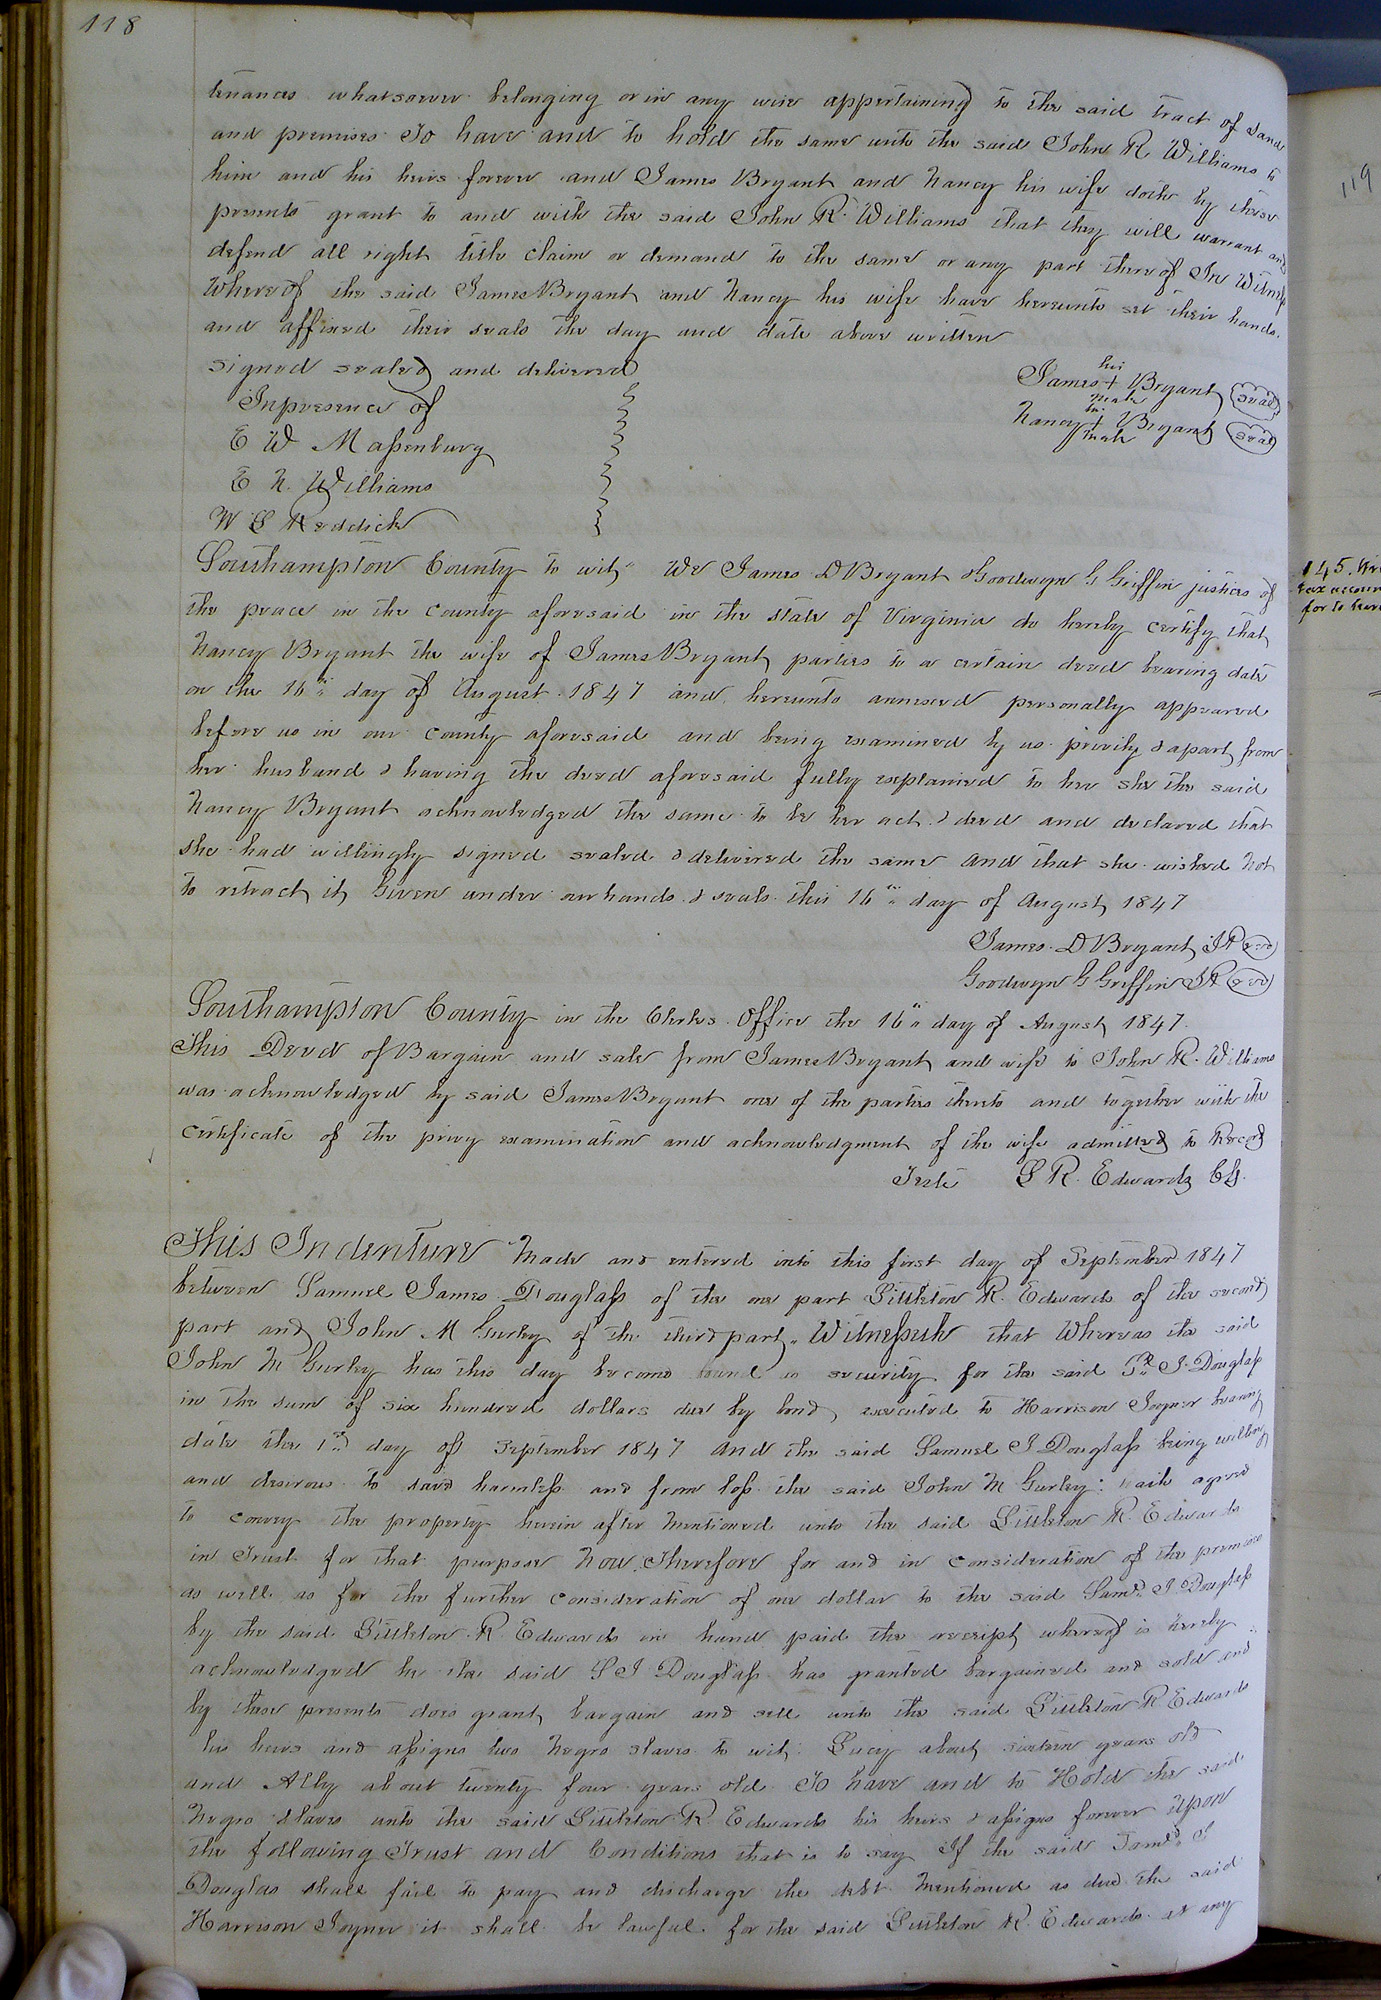 118
tenances whatsoever belonging or in any wise appertaining to the said tract of Land
and premises To have and to hold the same unto the said John R Williams to
him and his heirs forever and James Bryant and Nancy his wife doth by these
presents grant to and with the said John R. Williams that they will warrant and
defend all right title claim or demand to the same or any part thereof In Witness
Whereof the said James Bryant and Nancy his wife have hereunto set their hands
and affixed their seals the day and date above written
signed sealed and delivered
In presence of
E W Massenburg
E N. Williams
W S Reddick
his
James + Bryant seal
mark
her
Nancy + Bryant seal
mark
Southampton County to wit, We James D Bryant & Goodwyn G Griffin justices of
the peace in the County aforesaid in the state of Virginia do hereby certify that
Nancy Bryant the wife of James Bryant parties to a certain deed bearing date
on the 16th day of August 1847 and hereunto annexed personally appeared
before us in our County aforesaid and being examined by us privily & apart from
her husband & having the deed aforesaid fully explained to her she the said
Nancy Bryant acknowledged the same to be her act & deed and declared that
she had willingly signed sealed & delivered the same and that she wished not
to retract it Given under our hands & seals this 16th day of August 1847
James D Bryant JP seal
Goodwyn G Griffin JP seal
Southampton County in the Clerks Office the 16th day of August 1847.
This Deed of Bargain and sale from James Bryant and wife to John R. Williams
was acknowledged by said James Bryant one of the parties thereto and together with the
certificate of the privy examination and acknowledgment of the wife admitted to Record
Teste L R. Edwards Clk.
This Indenture Made and entered into this first day of September 1847
between Samuel James Douglass of the one part Littleton R. Edwards of the second
part and John M Gurley of the third part, Witnesseth that Whereas the said
John M Gurley has this day become bound as security for the said S. J. Douglass
in the sum of six hundred dollars due by bond, executed to Harrison Joyner bearing
date the 1st day of September 1847 and the said Samuel J Douglass being willing
and desirous to save harmless and from loss the said John M Gurley: hath agreed
to convey the property herein after mentioned unto the said Littleton R. Edwards
in Trust for that purpose Now Therefore for and in consideration of the premises
as well as for the further consideration of one dollar to the said Saml. J. Douglass
by the said Littleton R. Edwards in hand paid the receipt whereof is hereby
acknowledged he the said S J Douglass has granted bargained and sold and
by these presents does grant, bargain and sell unto the said Littleton R Edwards
his heirs and assigns two Negro slaves to wit: Lucy about sixteen years old
and Ally about twenty four years old To have and to Hold the said
Negro slaves unto the said Littleton R. Edwards his heirs & assigns forever upon
the following Trust and Conditions that is to say If the said Saml. J
Douglas shall fail to pay and discharge the debt mentioned as due the said
Harrison Joyner it shall be lawful for the said Littleton R. Edwards at any
119
145.
tax accoun
for to